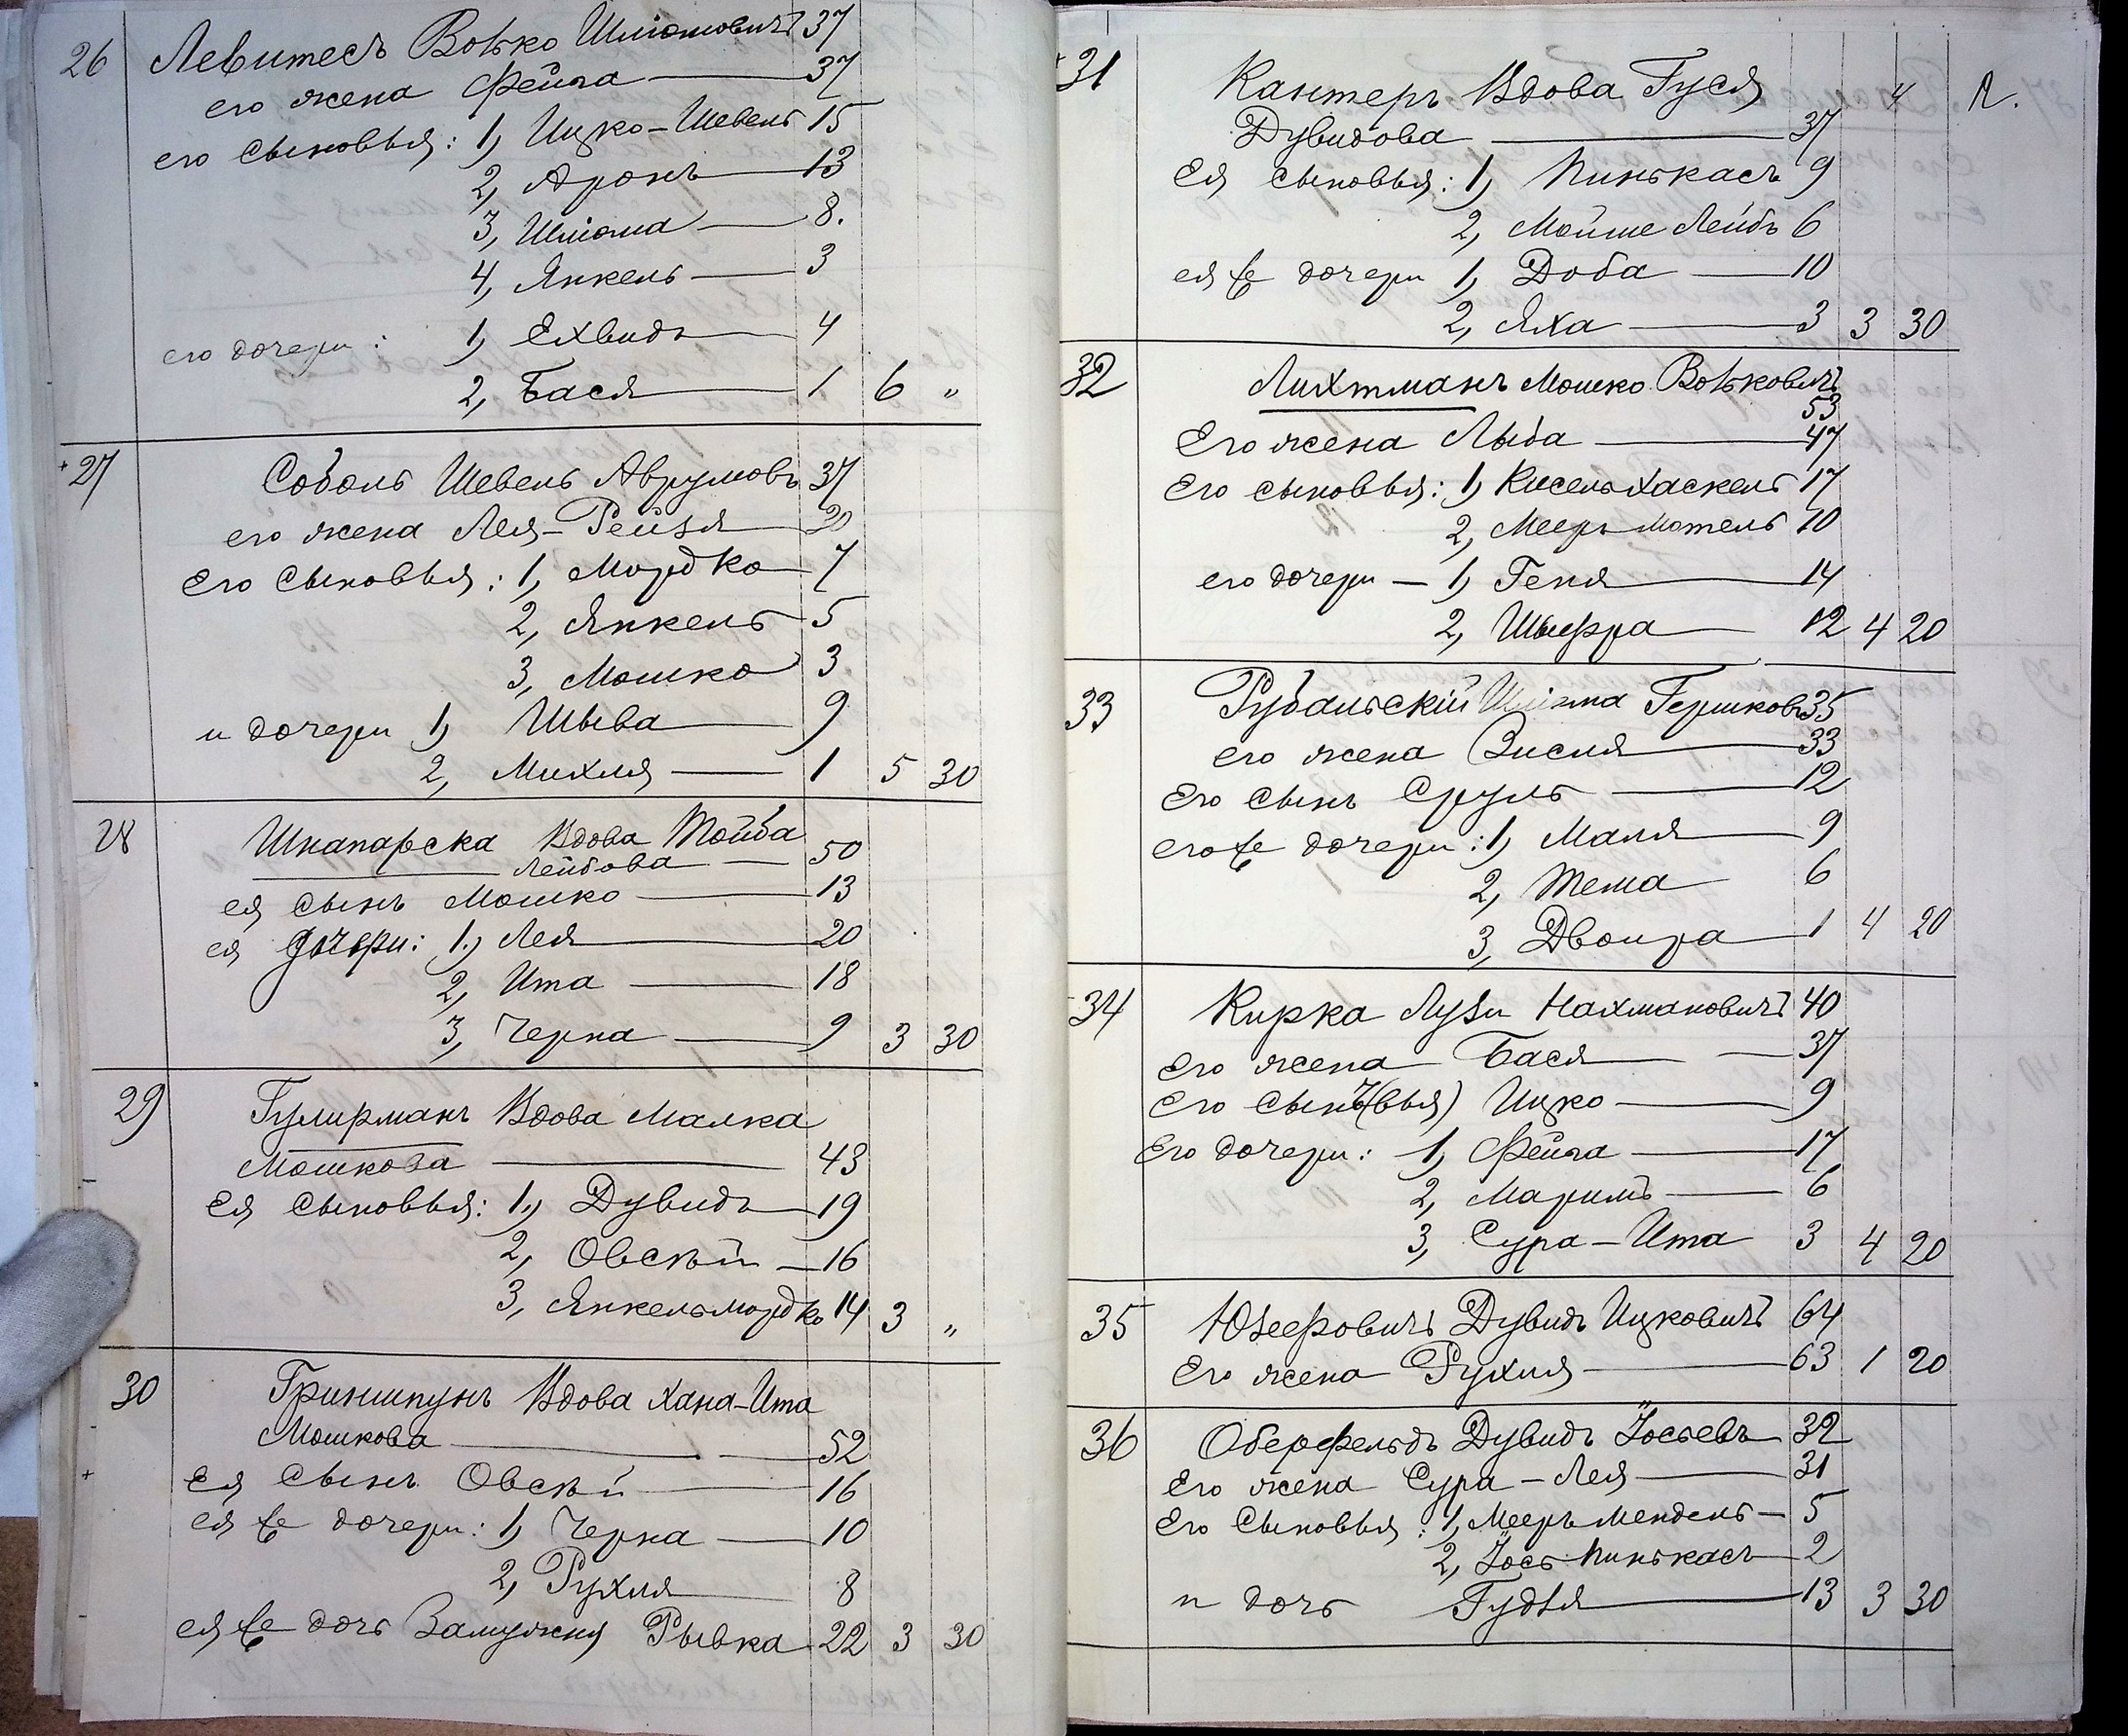 26 Левитесъ Волько Шліомовичъ 37
его жена Фейга 37
его сыновья: 1, Ицко-Шевель 15
2, Аронъ 13
3, Шліома 8.
4, Янкель 3
его дочери: 1, Ехвидъ 4
2, Бася 1 6 "
27 Соболь Шевель Аврумовъ 37
его жена Лея-Рейзя 30
Его сыновья: 1, Мордко 7
2, Янкель 5
3, Мошко 3
и дочери 1, Шыва 9
2, Михля 1 5 30
28 Шкапарска Вдова Тойба
Лейбова 50
ея сынъ Мошко 13
ея дочери: 1, Лея 20
2, Ита 18
3, Черна 9 3 30
29 Вдова Малка
Мошкова 43
Ея сыновья: 1, Дувидъ 19
2, Овсѣй 16
3, Янкель мордко 14 3 "
30 Гриншпунъ Вдова Хана-Ита
Мошкова 52
Ея Сынъ Овсѣй 16
ея же дочери: 1, Черна 10
2, Рухля 8
ея же дочь Замужня Рывка 22 3 30
31 Кантеръ Вдова Гуся 4
Дувидова 37
Ея сыновья: 1, Пинькасъ 9
2, Мойше Лейбъ 6
ея же дочери 1, Доба 10
2, Яха 3 3 30
32 Лихтманъ Мошко Вольковичъ
53
Его жена Лыба 47
Его сыновья: 1, Кисель Хаскель 17
2, Мееръ Мотель 10
его дочери — 1, Геня 14
2, Шыфра 12 4 20
33 Рубальскій Шліома Гершковъ 35
его жена Зисля 33
Его Сынъ Сруль 12
его же дочери: 1, Маля 9
2, Тема 6
3, Двойра 1 4 20
34 Кирка Лузи Нахмановичъ 40
Его жена Бася 37
Его Сынъ(вья) Ицко 9
Его дочери: 1, Фейга 17
2, Маримъ 6
3, Сура-Ита 3 4 20
35 Юзефовичъ Дувидъ Ицковичъ 64
Его жена Рухля 63 1 20
36 Оберфельдъ Дувидъ Іосьевъ 32
Его жена Сура-Лея 31
Его Сыновья: 1, Мееръ Мендель 5
2, Іось Пинькасъ 2
и дочь Гудля 13 3 30